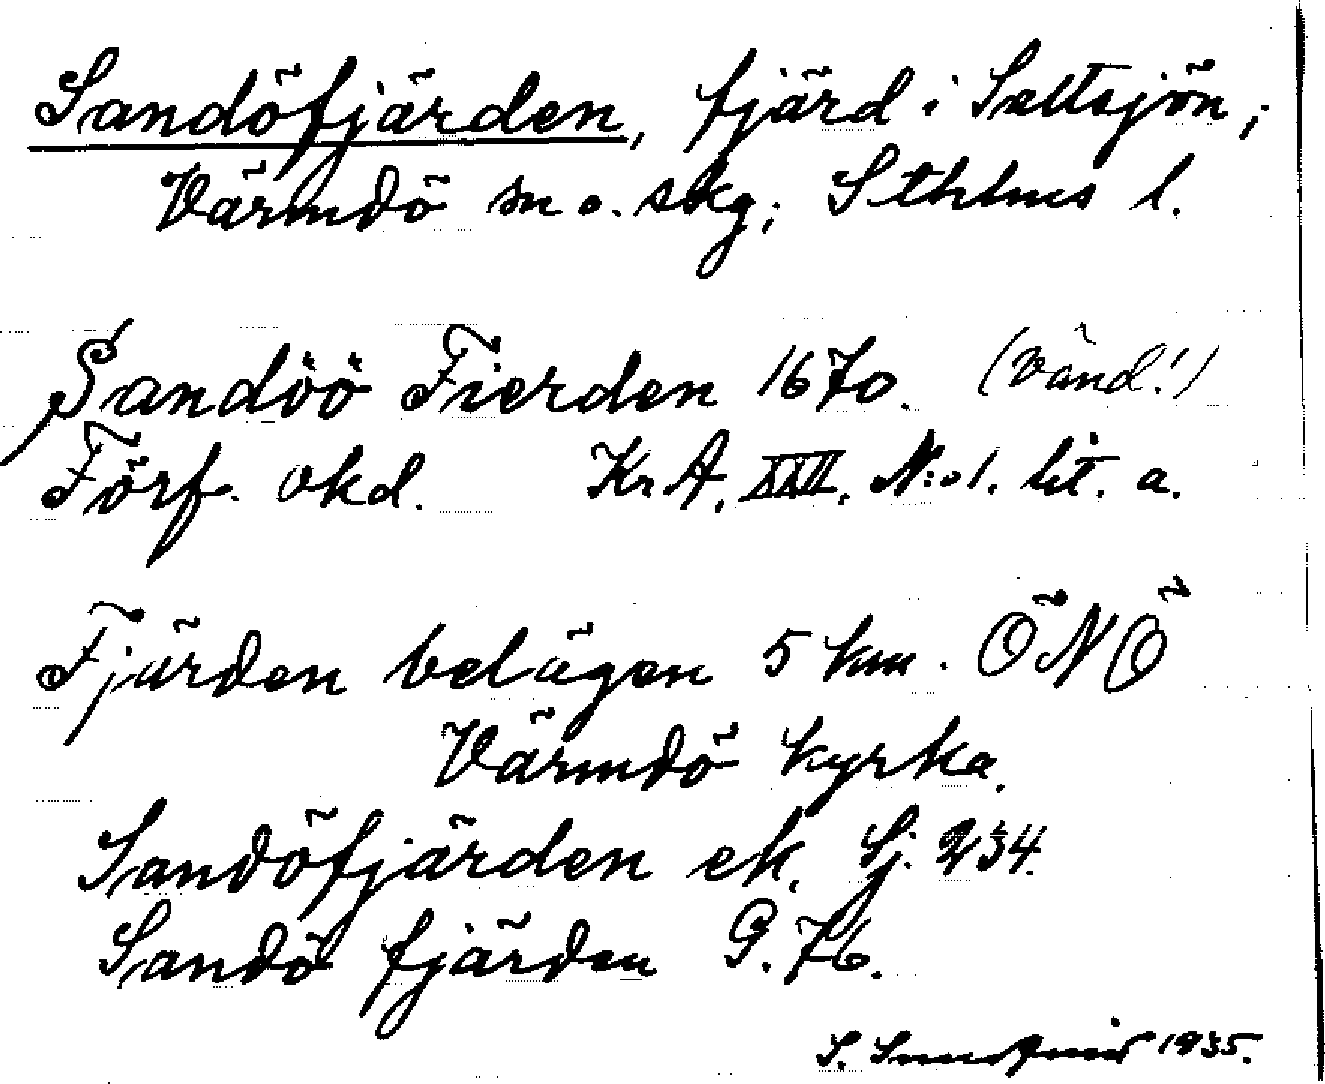 Sandöfjärden, fjärd i Saltsjön;
Värmdö sn o. skg; Sthlms l.
Sandöö Fierden 1670. (vänd!)
Förf. okd. Kr. A. XXII. N:o 1. lit. a.
Fjärden belägen 5 km. ÖNÖ
Värmdö kyrka.
Sandöfjärden ek. Sj. 234.
Sandö fjärden G. 76.
S. 1935.